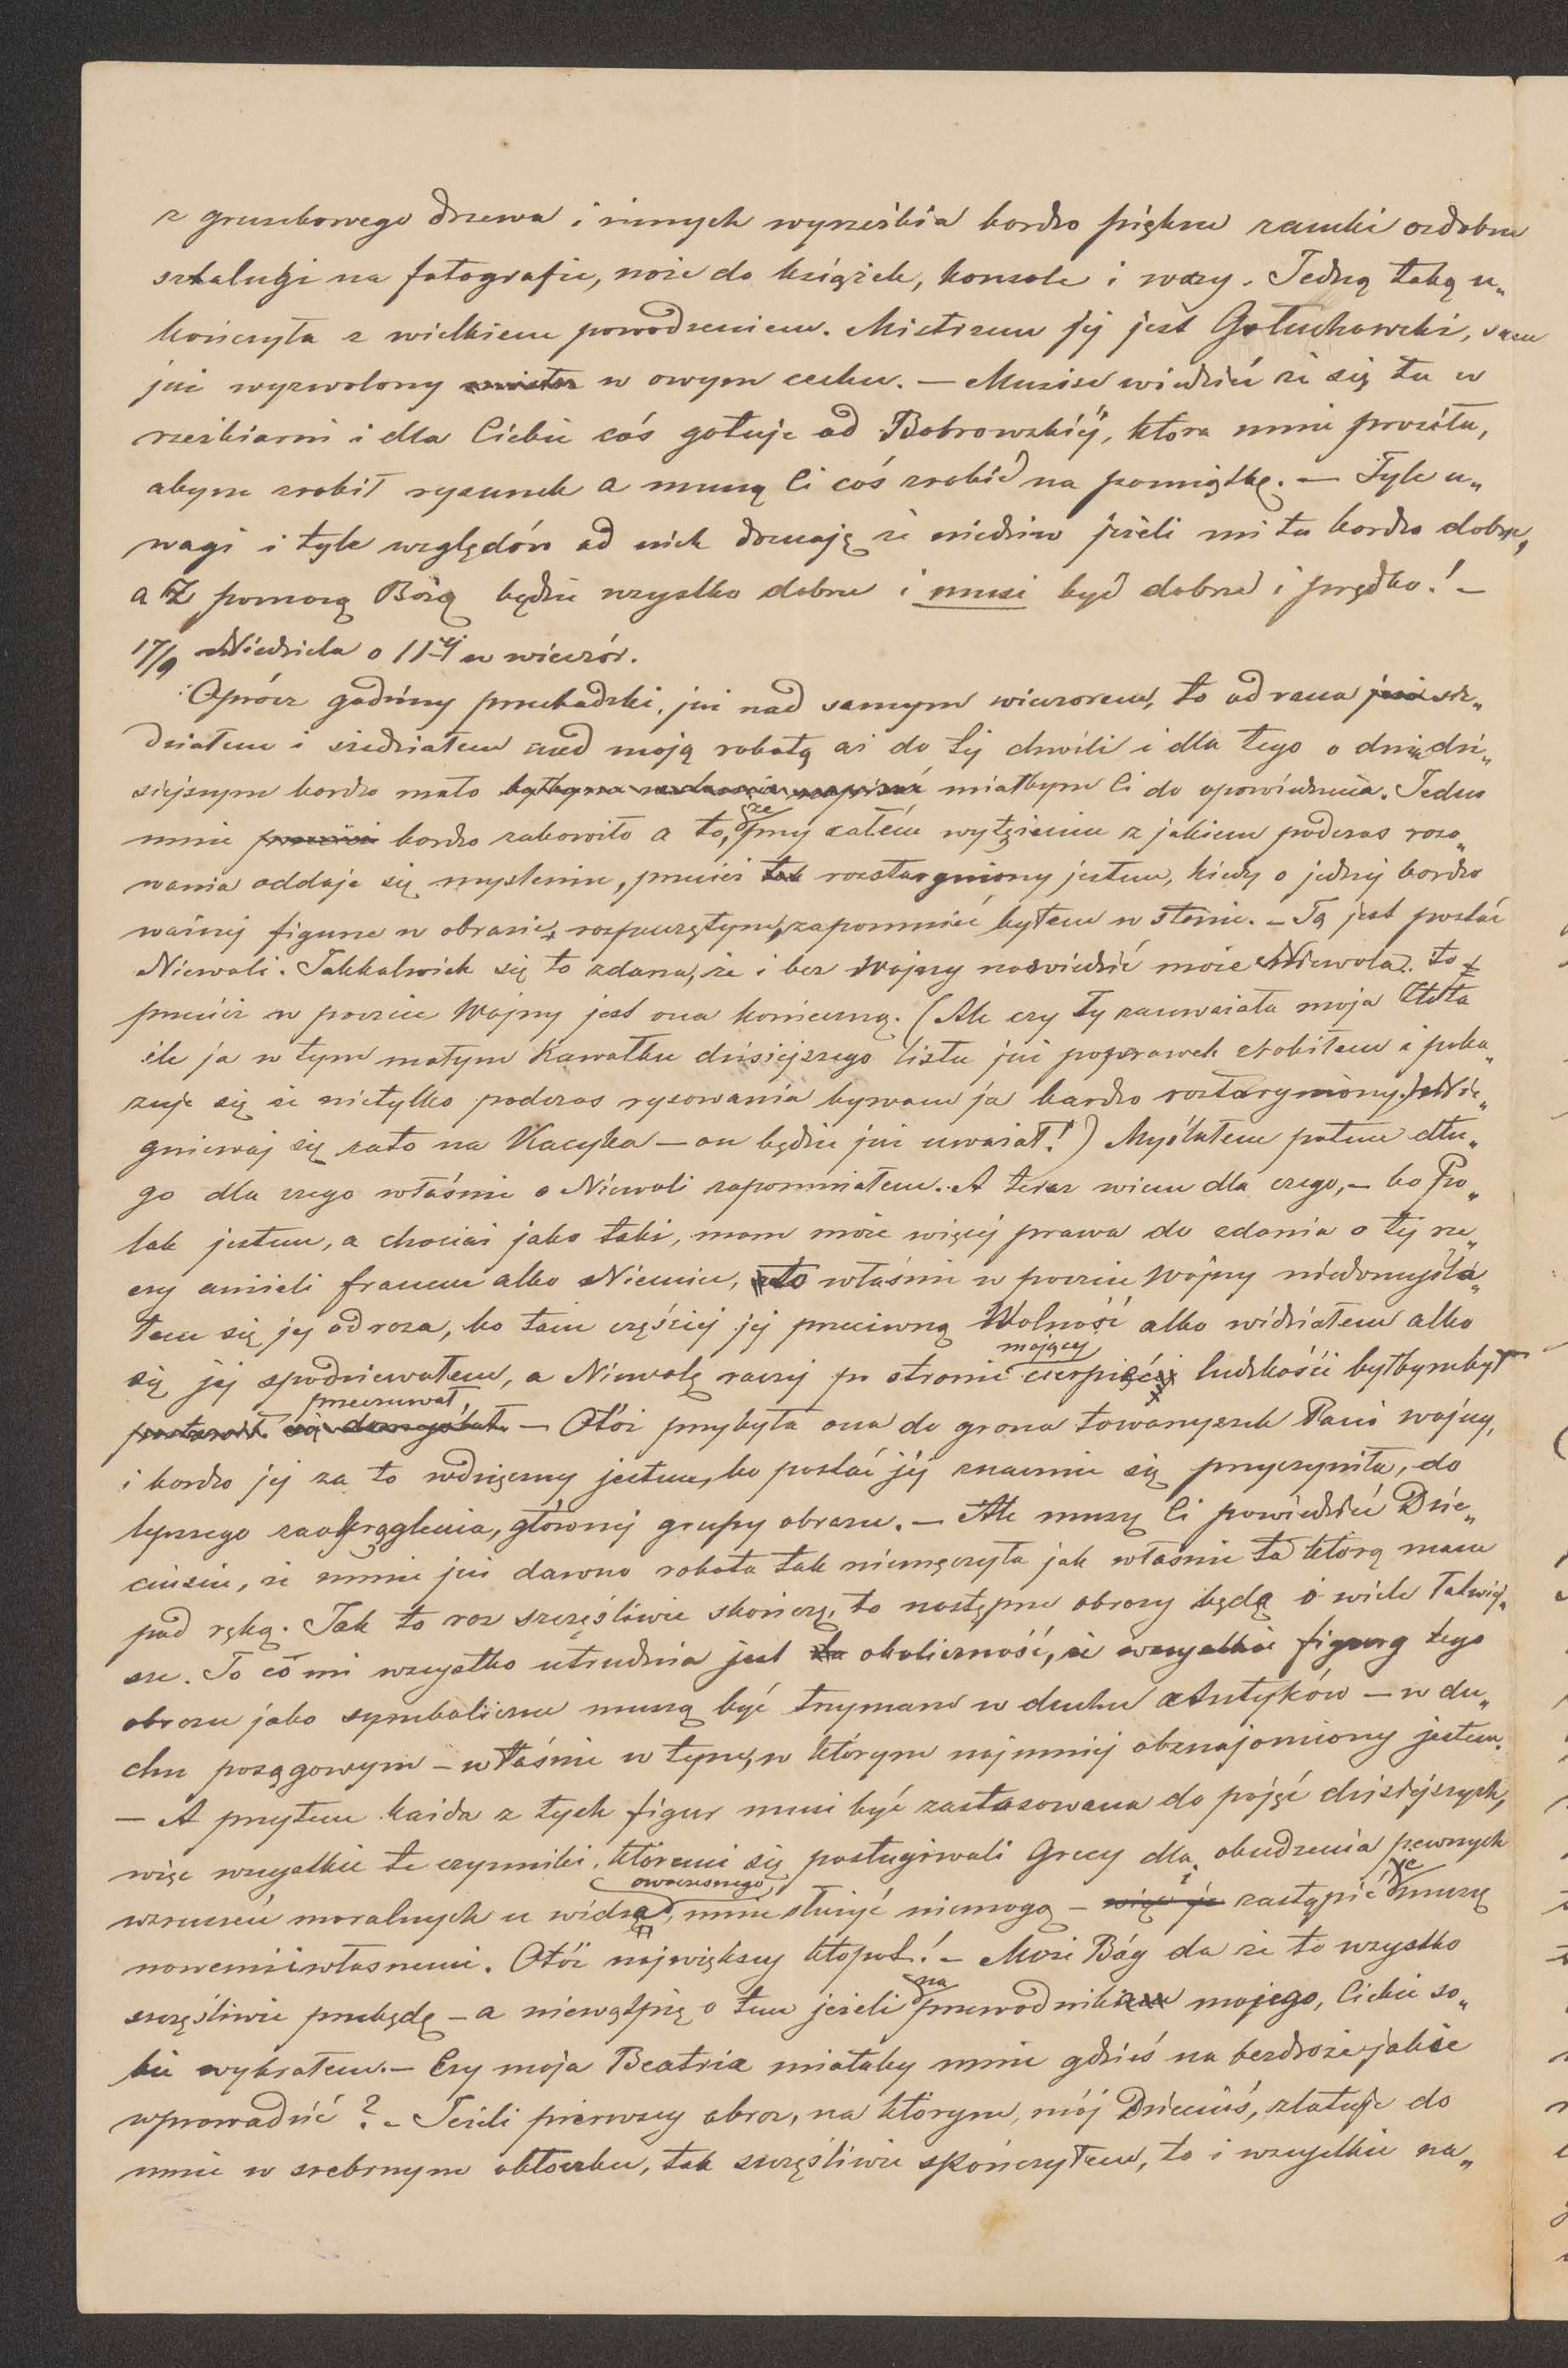 z gruszkowego drzewa i innych wyrzeźbia bardzo piękne ramki ozdobne
sztalugi na fotografie, noże do książek, konsole i wazy. Jedną taką u„
kończyła z wielkiem powodzeniem. Mistrzem jej jest Gołuchowski, sam
już wyzwolony w owym cechu. — Musisz wiedzieć że się tu w
rzeźbiarni i dla Ciebie cóś gotuje od Bobrowskiéj, która mnie prosiła,
abym zrobił rysunek a muszą Ci coś zrobić na pamiątkę. — Tyle u„
wagi i tyle względów od nich doznaję że niedziw jeżeli mi tu bardzo dobrze,
a Z pomocą Bożą będzie wszystko dobrze i musi być dobrze i prędko! —
17/9 Niedziela o 11ej w wieczór.
Oprócz godziny przechadzki, już nad samym wieczorem, to od rana sie„
działem i siedziałem nad moją robotą aż do tej chwili i dla tego o dniu dzi„
siejszym bardzo mało miałbym Ci do opowiedzenia. Jedno
mnie bardzo zabawiło a to, że przy całém wytężeniu z jakiem podczas ryso„
wania oddaje się myśleniu, przecież tak roztargniony jestem, kiedy o jednej bardzo
ważnej figurze w obrazie, rozpoczętym, zapomnieć byłem w stanie. — Tą jest postać
Niewoli. Jakkolwiek się to zdarza, że i bez Wojny nawiedzić może Niewola. to
przecież w poczcie Wojny jest ona konieczną. (Ale czy Ty zauważała moja Złota
ile ja w tym małym Kawałku dzisiejszego listu już poprawek zrobiłem i poka„
zuje się że nietylko podczas rysowania bywam ja bardzo roztargniony. Nie„
gniewaj się zato na Kacyka — on będzie już uważał!) Myślałem potem dłu„
go dla czego właśnie o Niewoli zapomniałem. A teraz wiem dla czego, — bo Po„
lak jestem, a chociaż jako taki, mam może więcej prawa do zdania o tej rze„
czy aniżeli francuz albo Niemiec, to właśnie w poczcie Wojny niedomyśla„
łem się jej odraza, bo tam częściej jej przeciwną Wolność albo widziałem albo
się jej spodziewałem, a Niewolę raczej po stronie mającej cierpieć ludzkości byłbym był
przeczuwał, — Otóż przybyła ona do grona towarzyszek Pani wojny,
i bardzo jej za to wdzięczny jestem, bo postać jéj znacznie się przyczyniła, do
lepszego zaokrąglenia, głównej grupy obrazu. — Ale muszę Ci powiedzieć Dzie„
ciusiu, że mnie już dawno robota tak niemęczyła jak właśnie ta którą mam
pod ręką. Jak to raz szczęśliwie skończę, to następne obrazy będą o wiele łatwiej„
sze. To có mi wszystko utrudnia jest okoliczność, że wszystkie figury tego
obrazu jako symboliczne muszą być trzymane w duchu Antyków — w du„
chu posągowym — właśnie w tym, w którym najmniej obznajomiony jestem.
— A przytem każda z tych figur musi być zastosowana do pojęć dzisiejszych,
więc wszystkie te czynniki, któremi się posługiwali Grecy dla obudzenia pewnych
wzruszeń moralnych u widza owoczesnego, mnie służyć niemogą — i zastąpić je muszę
nowemi i własnemi. Otóż największy kłopot! — Może Bóg da że to wszystko
szczęśliwie przebędę — a niewątpię o tem jeżeli na przewodnika mojego, Ciebie so„
bie wybrałem. — Czy moja Beatrix miałaby mnie gdzieś na bezdroże jakie
wprowadzić? — Jeżeli pierwszy obraz, na którym, mój Dzieciuś, zlatuje do
mnie w srebrnym obłoczku, tak szczęśliwie skończyłem, to i wszystkie na„